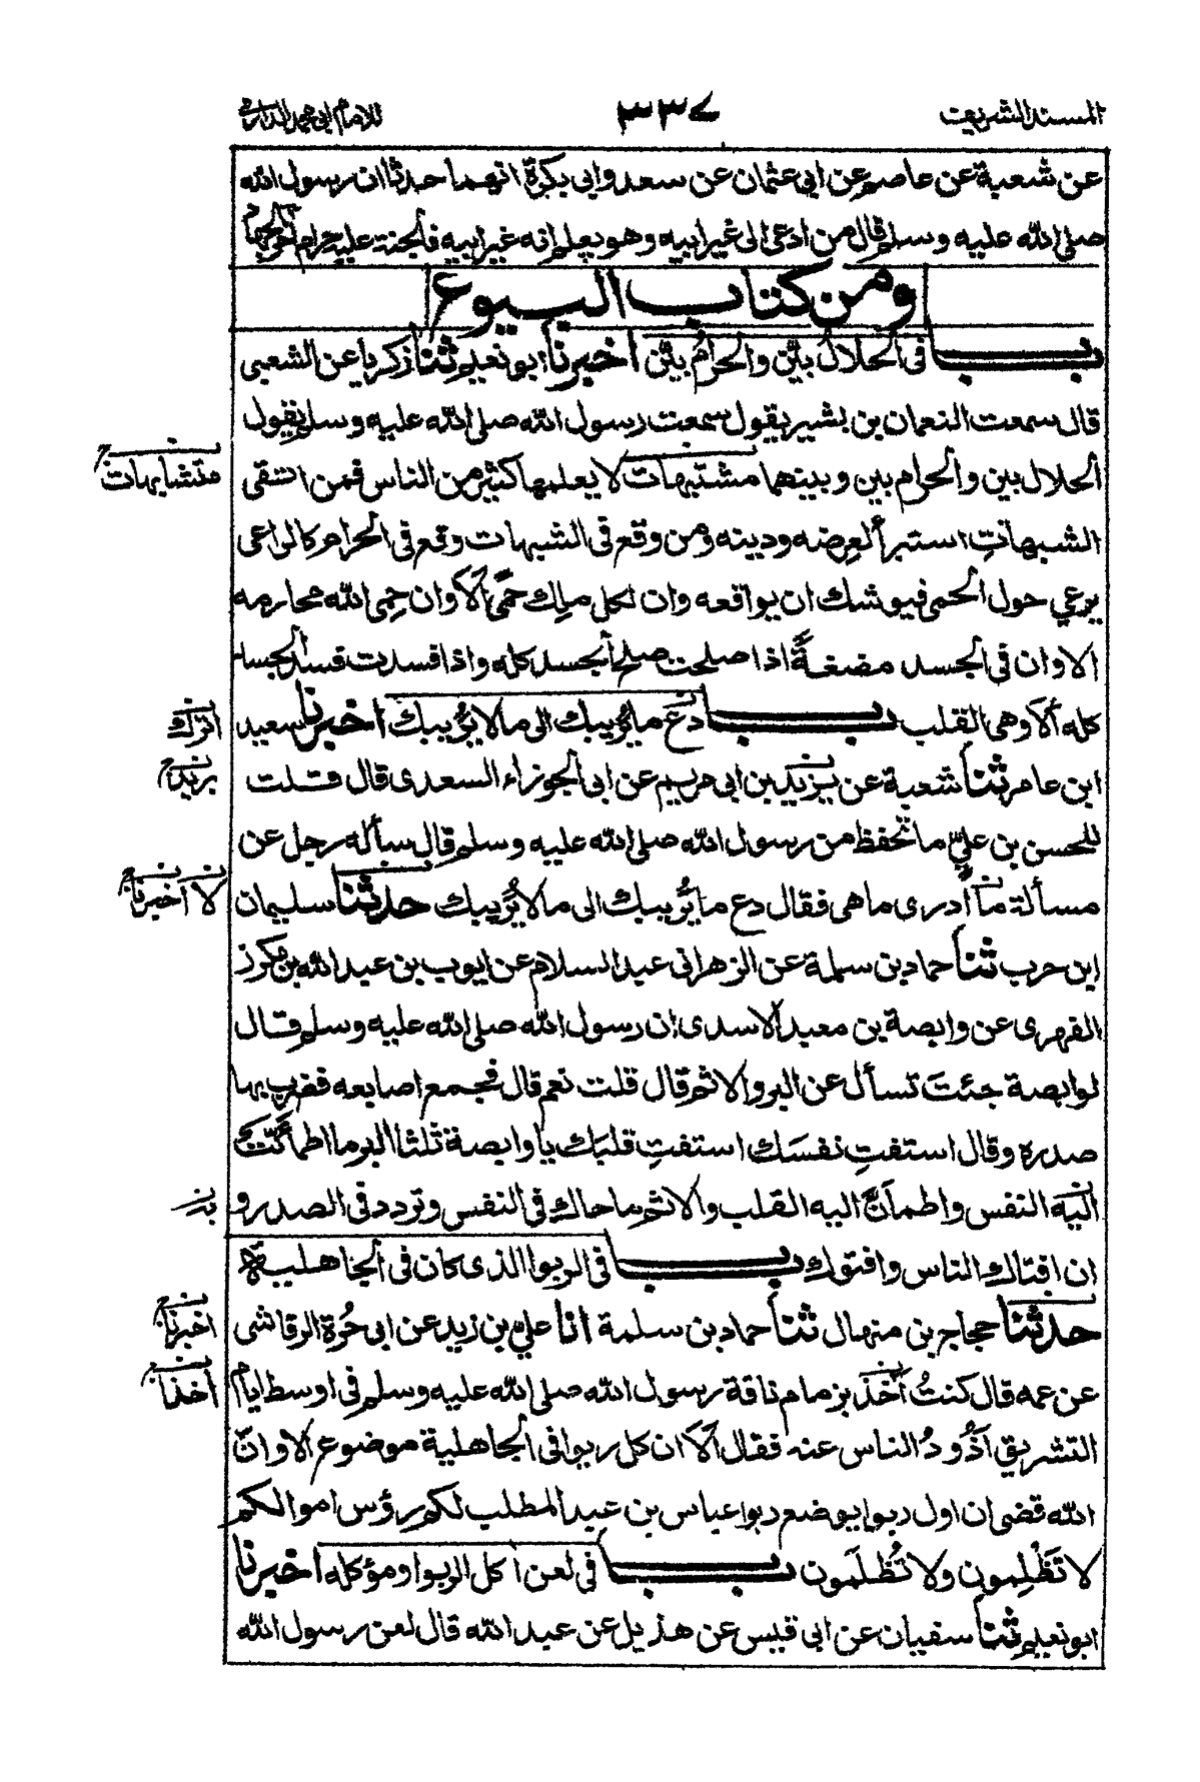 المسند الشريف ٣٣٧ للامام ابی محمد الدارمی
عن شعبة عن عاصم عن ابی عثمان عن سعد وابی بکرة انهما حدثا ان رسول الله
صلی الله علیه وسلم قال من ادعی الی غیر ابیه وهو یعلم انه غیر ابیه فالجنة علیه حرام
ومن کتاب البیوع
باب فی الحلال بیّن والحرام بیّن اخبرنا ابو نعیم ثنا زکریا عن الشعبی
قال سمعت النعمان بن بشیر یقول سمعت رسول الله صلی الله علیه وسلم یقول
الحلال بین والحرام بین وبینهما مشتبهات لا یعلمها کثیر من الناس فمن اتقی
متشابهات
الشبهاتِ استبرأ لعِرضه ودینه ومن وقع فی الشبهات وقع فی الحرام کالراعی
یرعی حول الحمی فیوشک ان یواقعه وان لکل ملِک حمًی ألَا وان حِمی الله محارمه
الا وان فی الجسد مضغةً اذا صلحت صلح الجسد کله واذا فسدت فسد الجسد
کله ألا وهی القلب باب دَع ما یُریبک الی ما لا یُریبک اخبرنا سعید
اترک
ابن عامر ثنا شعبة عن یزید بن ابی مریم عن ابی الجوزاء السعدی قال قلت
برید
للحسن بن علیّ ما تحفظ من رسول الله صلی الله علیه وسلم قال سأله رجل عن
مسألة ما أدری ما هی فقال دع ما یُریبک الی ما لا یُریبک حدثنا سلیمان
لا اخبرنا
ابن حرب ثنا حماد بن سلمة عن الزهرانی عبد السلام عن ایوب بن عبد الله بن مکرز
الفهری عن وابصة بن معبد الاسدی ان رسول الله صلی الله علیه وسلم قال
لوابصة جئتَ تسأل عن البر والاثم قال قلت نعم قال فجمع اصابعه فضرب بها
صدره وقال استفتِ نفسَک استفتِ قلبَک یا وابصة ثلثا البر ما اطمأنّت
الیه النفس واطمأنّ الیه القلب والاثم ما حاک فی النفس وتردد فی الصدر و
ان افتاک الناس وافتوک باب فی الربوا الذی کان فی الجاهلیة
حدثنا حجاج بن منهال ثنا حماد بن سلمة انا علیّ بن زید عن ابی حُرّة الرقاشی
اخبرنا
عن عمه قال کنتُ آخذ بزمام ناقة رسول الله صلی الله علیه وسلم فی اوسط ایام
اخذا
التشریق أذُودُ الناس عنه فقال ألَا ان کل ربوا فی الجاهلیة موضوع الا وانّ
الله قضی ان اول ربوا یوضع ربوا عباس بن عبد المطلب لکم رؤس اموالکم
لا تَظْلِمون ولا تُظْلَمون باب فی لعن اکل الربوا ومؤکله اخبرنا
ابو نعیم ثنا سفیان عن ابی قیس عن هذیل عن عبد الله قال لعن رسول الله